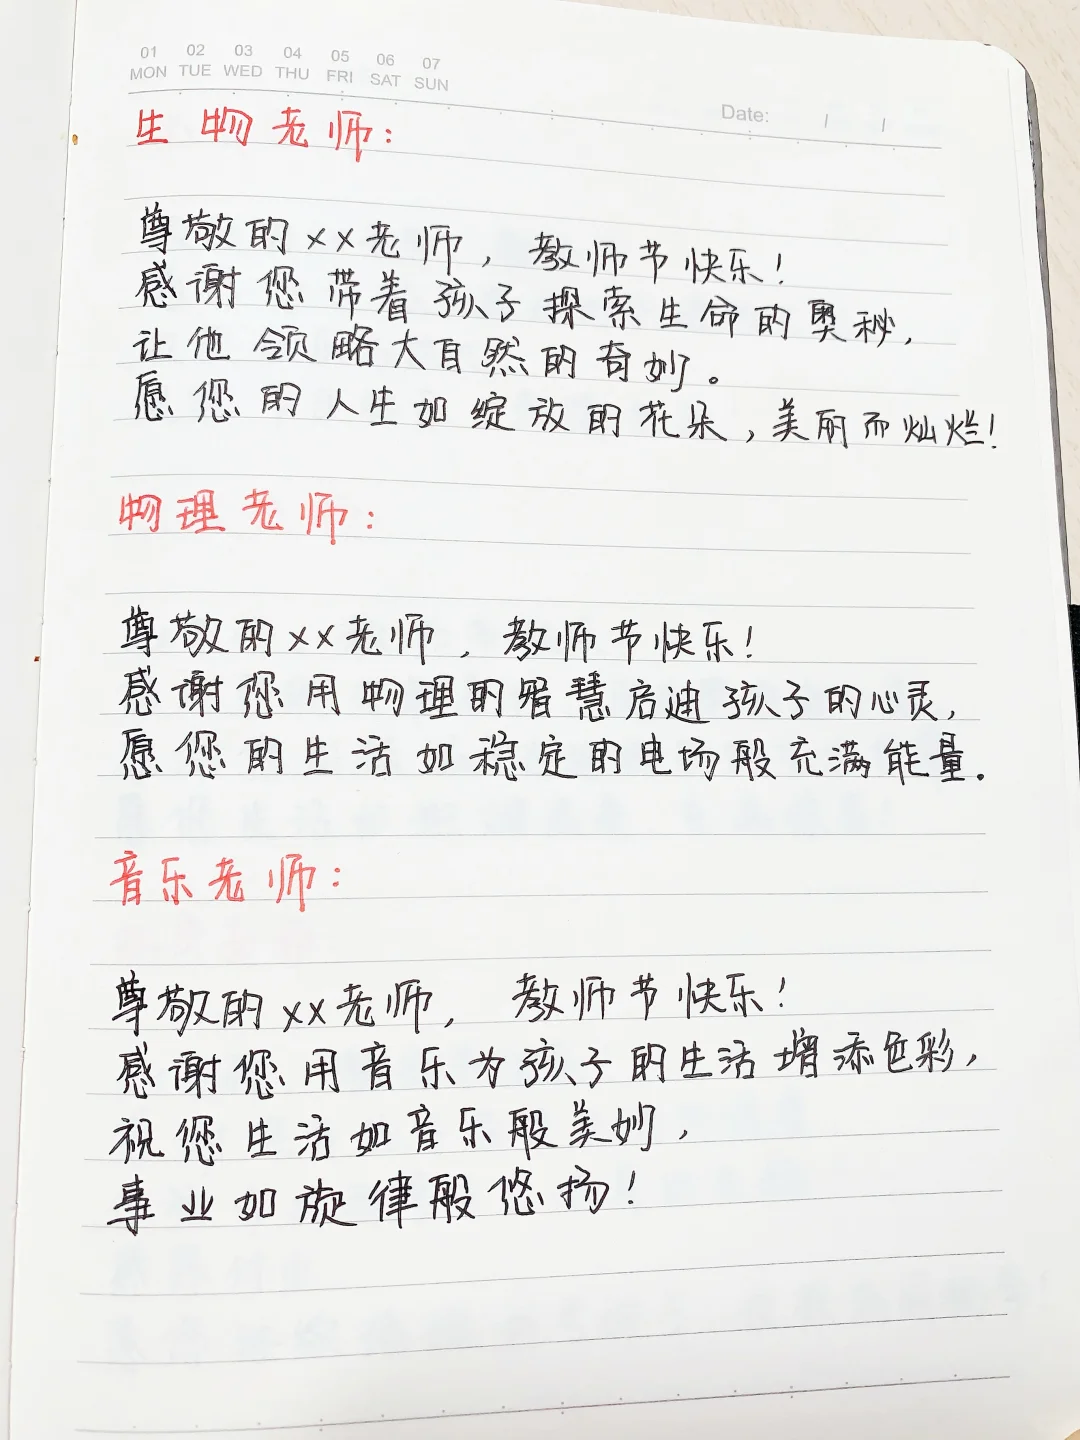 01 02 03 04 05 06 07
MON TUE WED THU FRI SAT SUN
Date: / /
生物老师:
尊敬的××老师,教师节快乐!
感谢您带着孩子探索生命的奥秘,
让他领略大自然的奇妙。
愿您的人生如绽放的花朵,美丽而灿烂!
物理老师:
尊敬的××老师,教师节快乐!
感谢您用物理的智慧启迪孩子的心灵,
愿您的生活如稳定的电场般充满能量.
音乐老师:
尊敬的××老师,教师节快乐!
感谢您用音乐为孩子的生活增添色彩,
祝您生活如音乐般美妙,
事业如旋律般悠扬!